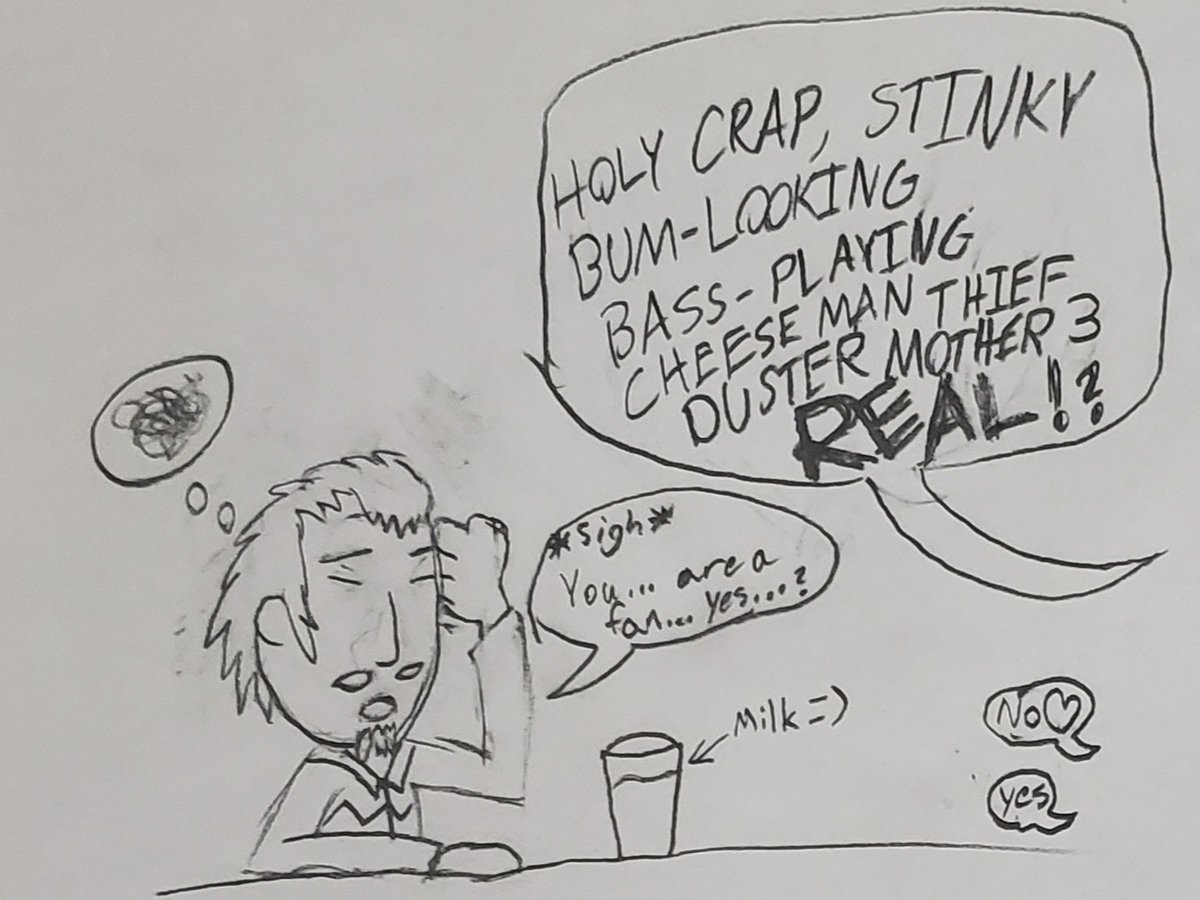 HOLY CRAP, STINKY
BUM-LOOKING
BASS-PLAYING
CHEESE MAN THIEF
DUSTER MOTHER 3
REAL!?
*Sigh*
You... are a
fan... yes...?
Milk =)
No♡
yes